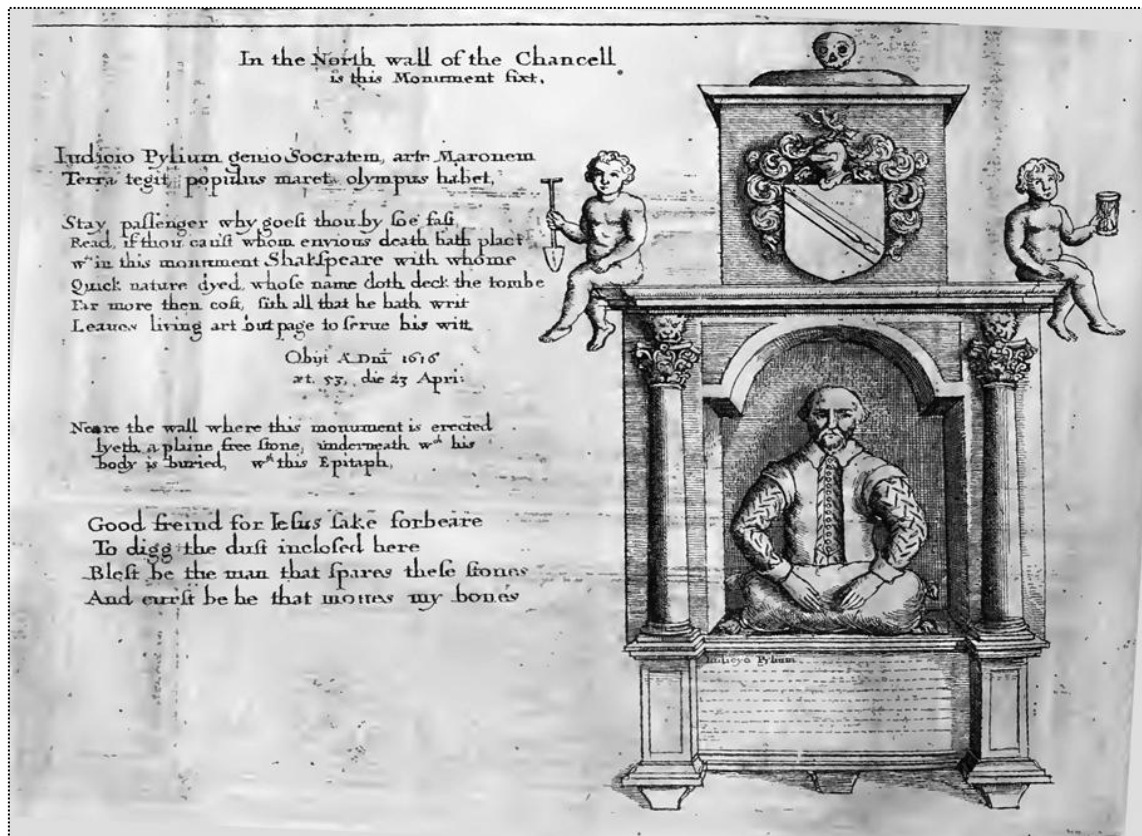 In the North wall of the Chancell
is this Monument fixt.
Iudicio Pylium genio Socratem, arte Maronem
Terra tegit, populus mæret, olympus habet,
Stay passenger why goest thou by soe fast
Read, if thou canst whom envious death hath plact
wᵗʰin this monument Shakspeare with whome
Quick nature dyed, whose name doth deck the tombe
Far more then cost, sith all that he hath writ
Leaves living art but page to serue his witt
Obijt A Dni 1616
æt. 53, die 23 Apri:
Neare the wall where this monument is erected
lyeth a plaine free stone, underneath wᶜʰ his
body is buried, wᵗʰ this Epitaph,
Good freind for Iesus sake forbeare
To digg the dust inclosed here
Blest be the man that spares these stones
And curst be he that moues my bones
Iudicyo Pylium